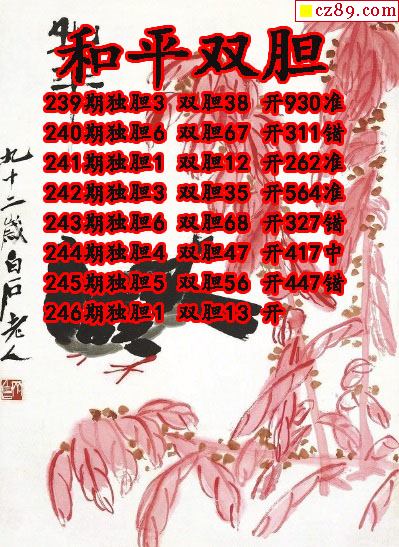 cz89.com
和平双胆
239期独胆3 双胆38 开930准
240期独胆6 双胆67 开311错
241期独胆1 双胆12 开262准
242期独胆3 双胆35 开564准
243期独胆6 双胆68 开327错
244期独胆4 双胆47 开417中
245期独胆5 双胆56 开447错
246期独胆1 双胆13 开
九十二岁白石老人